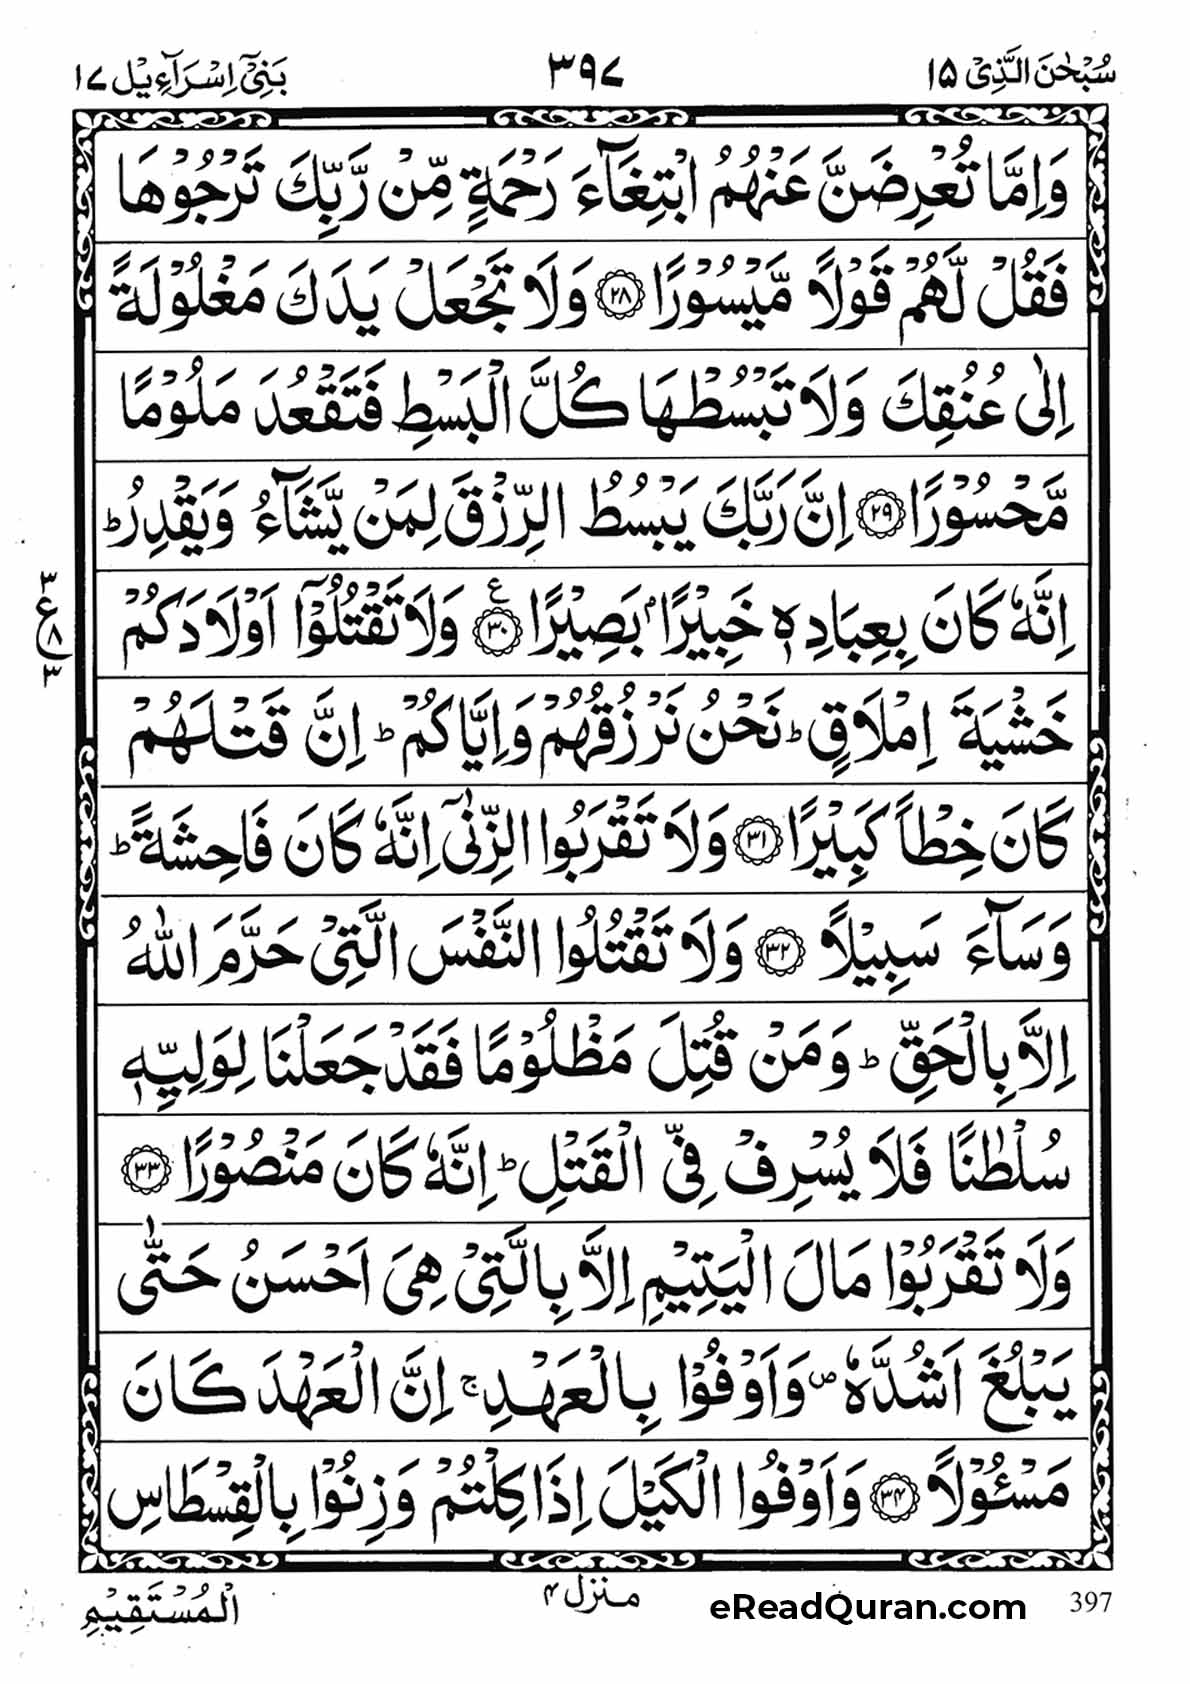 سُبْحٰنَ الَّذِيْ ١٥
٣٩٧
بَنِيْٓ اِسْرَآءِيْل ١٧
وَاِمَّا تُعْرِضَنَّ عَنْهُمُ ابْتِغَآءَ رَحْمَةٍ مِّنْ رَّبِّكَ تَرْجُوْهَا
فَقُلْ لَّهُمْ قَوْلًا مَّيْسُوْرًا ۲۸ وَلَا تَجْعَلْ يَدَكَ مَغْلُوْلَةً
اِلٰى عُنُقِكَ وَلَا تَبْسُطْهَا كُلَّ الْبَسْطِ فَتَقْعُدَ مَلُوْمًا
مَّحْسُوْرًا ۲۹ اِنَّ رَبَّكَ يَبْسُطُ الرِّزْقَ لِمَنْ يَّشَآءُ وَيَقْدِرُ ؕ
اِنَّهٗ كَانَ بِعِبَادِهٖ خَبِيْرًاۢ بَصِيْرًا ۳۰ ع وَلَا تَقْتُلُوْٓا اَوْلَادَكُمْ
٣
ع ٨
٣
خَشْيَةَ اِمْلَاقٍ ؕ نَحْنُ نَرْزُقُهُمْ وَاِيَّاكُمْ ؕ اِنَّ قَتْلَهُمْ
كَانَ خِطْاً كَبِيْرًا ۳۱ وَلَا تَقْرَبُوا الزِّنٰىٓ اِنَّهٗ كَانَ فَاحِشَةً ؕ
وَسَآءَ سَبِيْلًا ۳۲ وَلَا تَقْتُلُوا النَّفْسَ الَّتِيْ حَرَّمَ اللّٰهُ
اِلَّا بِالْحَقِّ ؕ وَمَنْ قُتِلَ مَظْلُوْمًا فَقَدْ جَعَلْنَا لِوَلِيِّهٖ
سُلْطٰنًا فَلَا يُسْرِفْ فِّي الْقَتْلِ ؕ اِنَّهٗ كَانَ مَنْصُوْرًا ۳۳
وَلَا تَقْرَبُوْا مَالَ الْيَتِيْمِ اِلَّا بِالَّتِيْ هِيَ اَحْسَنُ حَتّٰى
يَبْلُغَ اَشُدَّهٗ ص وَاَوْفُوْا بِالْعَهْدِ ۚ اِنَّ الْعَهْدَ كَانَ
مَسْئُوْلًا ۳۴ وَاَوْفُوا الْكَيْلَ اِذَا كِلْتُمْ وَزِنُوْا بِالْقِسْطَاسِ
الْمُسْتَقِيْمِ
منزل ۴
eReadQuran.com
397